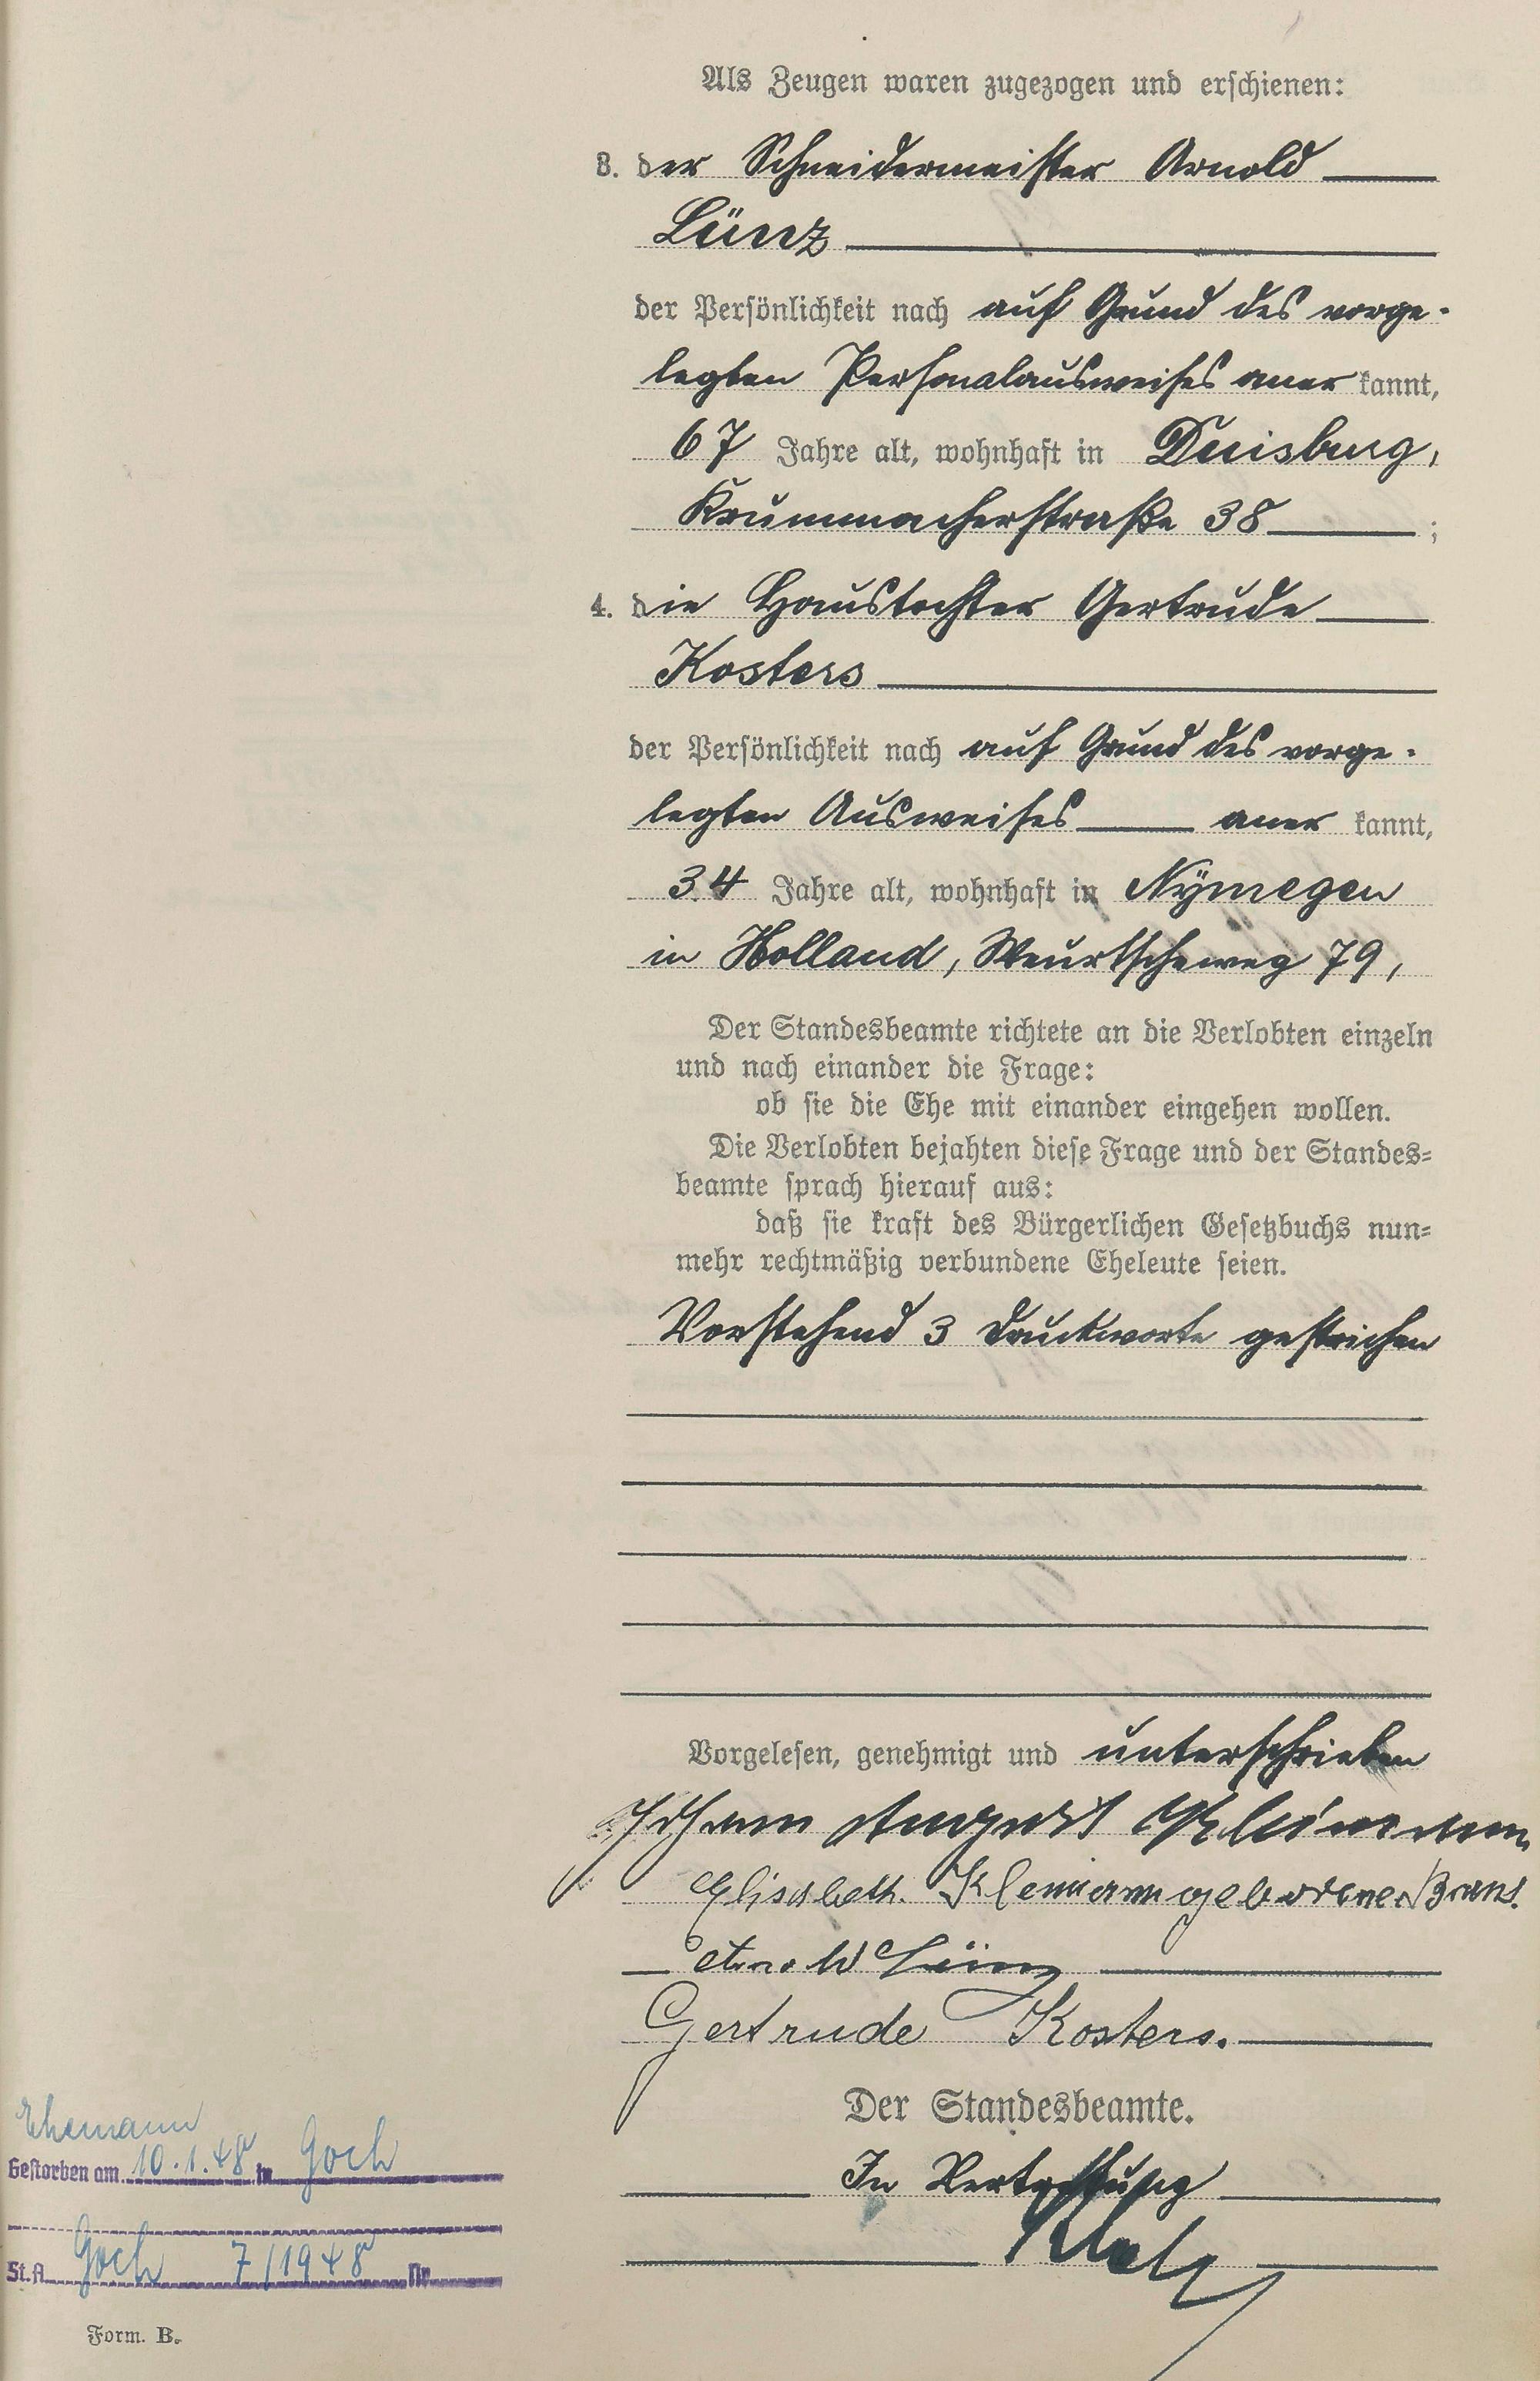 Als Zeugen waren zugezogen und erschienen:
3. der Schneidermeister Arnold
Lünz
der Persönlichkeit nach auf Grund des vorge-
legten Personalausweises aner kannt,
67 Jahre alt, wohnhaft in Duisburg,
Krummacherstraße 38 ;
4. die Haustochter Gertrude
Kosters
der Persönlichkeit nach auf Grund des vorge-
legten Ausweises aner kannt,
34 Jahre alt, wohnhaft in Nÿmegen
in Holland, Weurtscheweg 79,
Der Standesbeamte richtete an die Verlobten einzeln
und nach einander die Frage:
ob sie die Ehe mit einander eingehen wollen.
Die Verlobten bejahten diese Frage und der Standes-
beamte sprach hierauf aus:
daß sie kraft des Bürgerlichen Gesetzbuchs nun-
mehr rechtmäßig verbundene Eheleute seien.
Vorstehend 3 Druckworte gestrichen
Vorgelesen, genehmigt und unterschrieben
Johann August Kleimann
Elisabeth Kleimann geborene Brans.
Arnold Lünz
Gertrude Kosters.
Der Standesbeamte.
In Vertretung
Ehemann
Gestorben am 10.1.48 in Goch
St.A. Goch 7/1948 Nr
Form. B.